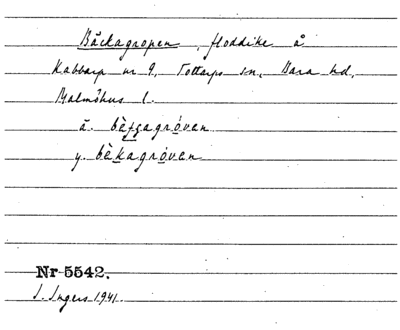 Bäckagropen, floddike å
Kabbarp nr 9, Tottarps sn, Bara hd,
Malmöhus l.
ä. bèƫʂagróven
y. bèkagróven
Nr 5542.
I. Ingers 1941.